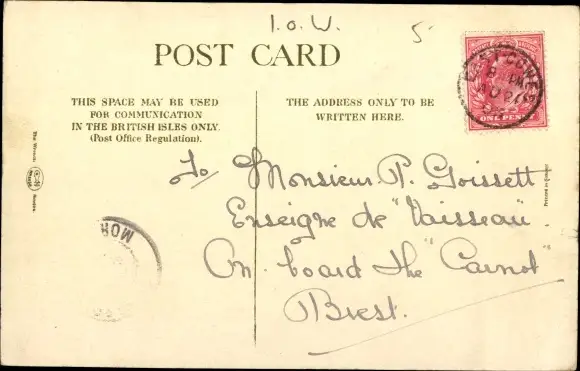 I.O.W.
5
POST CARD
THIS SPACE MAY BE USED
FOR COMMUNICATION
IN THE BRITISH ISLES ONLY.
(Post Office Regulation).
THE ADDRESS ONLY TO BE
WRITTEN HERE.
ONE PENNY
The Wrench
Series.
To Monsieur P. Goissett
Enseigne de "Vaisseau"
On board the "Carnot"
Brest.
MOR